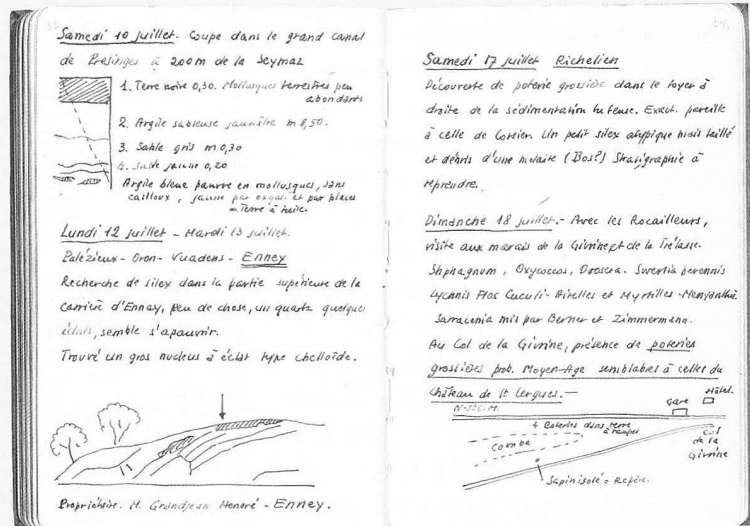 Samedi 10 juillet. Coupe dans le grand canal
de Presinges à 200m de la Seymaz
1. Terre noire 0,30. Mollusques terrestres peu
abondants
2. Argile sableuse jaunâtre m 0,50.
3. Sable gris m 0,30
4. Sable jaune 0,20
Argile bleue pauvre en mollusques, sans
cailloux, jaune par oxyd. et par places
= Terre à tuile.
Lundi 12 juillet - Mardi 13 juillet.
Palézieux - Oron - Vuadens - Enney
Recherche de silex dans la partie supérieure de la
carrière d'Enney, peu de chose, un quartz quelques
éclats, semble s'apauvrir.
Trouvé un gros nucleus à éclat type chelloïde.
Propriétaire. M. Grandjean Honoré - Enney.
34.
Samedi 17 juillet Richelien
Découverte de poterie grossière dans le foyer à
droite de la sédimentation tufeuse. Exact. pareille
à celle de Corsier Un petit silex atypique mais taillé
et débris d'une molaire (Bos?) Stratigraphie à
reprendre.
Dimanche 18 juillet.- Avec les Rocailleurs,
visite aux marais de la Givrine et de la Trélasse.
Shphagnum, Oxycoccos, Drosera. Swertia perennis
Lychnis Flos Cuculi- Airelles et Myrtilles - Menyanthes
Sarracenia mis par Berner et Zimmermann.
Au Col de la Givrine, présence de poteries
grossières prob. Moyen-Age semblables à celles du
Château de St Cergues.-
Hôtel.
Gare
N-St-C-M.
+ Poteries dans terre
à taupes
Combe
Col
de la
Givrine
Sapin isolé = Repère.